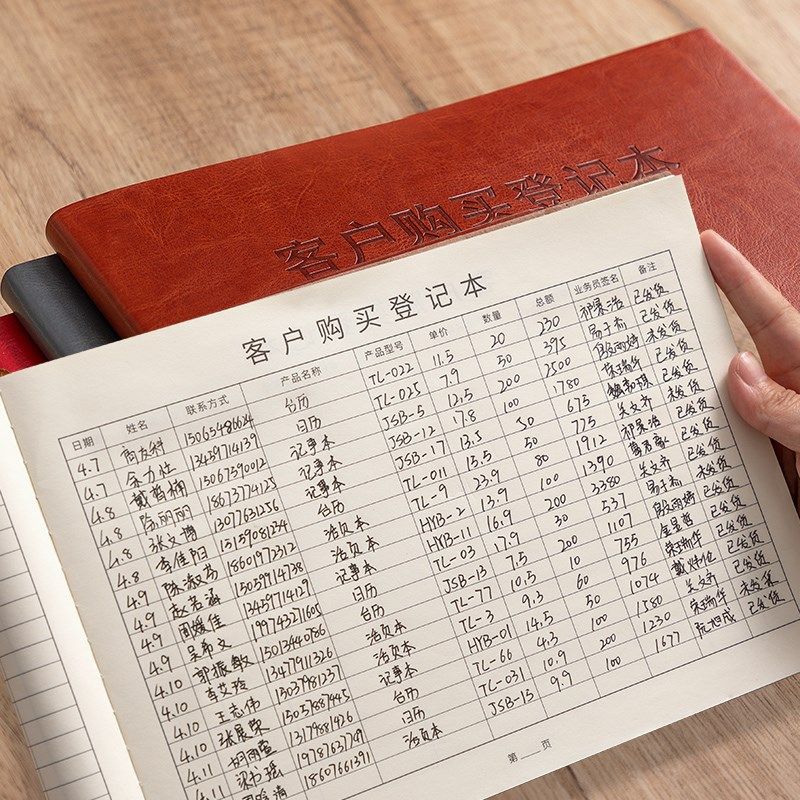 客户购买登记本
客户购买登记本
日期 姓名 联系方式 产品名称 产品型号 单价 数量 总额 业务员签名 备注
4.7 15065486624 台历 TL-022 11.5 20 230 祁景浩 已发货
4.7 余力仕 13459714139 日历 TL-025 7.9 50 395 易子希 已发货
4.8 戴哲楠 15067590012 记事本 JSB-5 12.5 200 2500 殷雨婷 未发货
4.8 陈丽丽 18673774125 记事本 JSB-12 17.8 100 1780 荣瑞华 已发货
4.8 张文博 13077631256 记事本 JSB-17 13.5 50 675 已发货
4.9 李佳阳 15159081234 台历 TL-011 15.5 50 775 关文齐 未发货
4.9 陈淑芬 18601972312 活页本 TL-9 23.9 80 1912 祁景浩 已发货
4.9 赵若涵 15059914738 活页本 HYB-2 13.9 100 1390 葛君豪 已发货
4.10 周媛佳 13459714129 记事本 HYB-11 16.9 200 3380 关文齐 已发货
4.10 吴希文 19974327160 日历 TL-03 17.9 30 537 易子希 未发货
4.10 郭振敏 15013440786 台历 JSB-13 7.5 200 1107 殷雨婷 已发货
4.11 李艾玲 13477911326 活页本 TL-77 10.5 10 755 金昊哲 已发货
4.11 王志伟 13037981237 活页本 TL-3 9.3 60 976 荣瑞华 已发货
张晨荣 15057887445 记事本 HYB-01 14.5 50 1074 戴炜伦 已发货
胡雨萱 13179881926 台历 TL-66 4.3 100 1580 关文齐 已发货
梁书瑶 19787637749 日历 TL-031 10.9 200 1230 荣瑞华 未发货
18607661391 活页本 JSB-15 9.9 100 1677 阮旭成 已发货
第 页